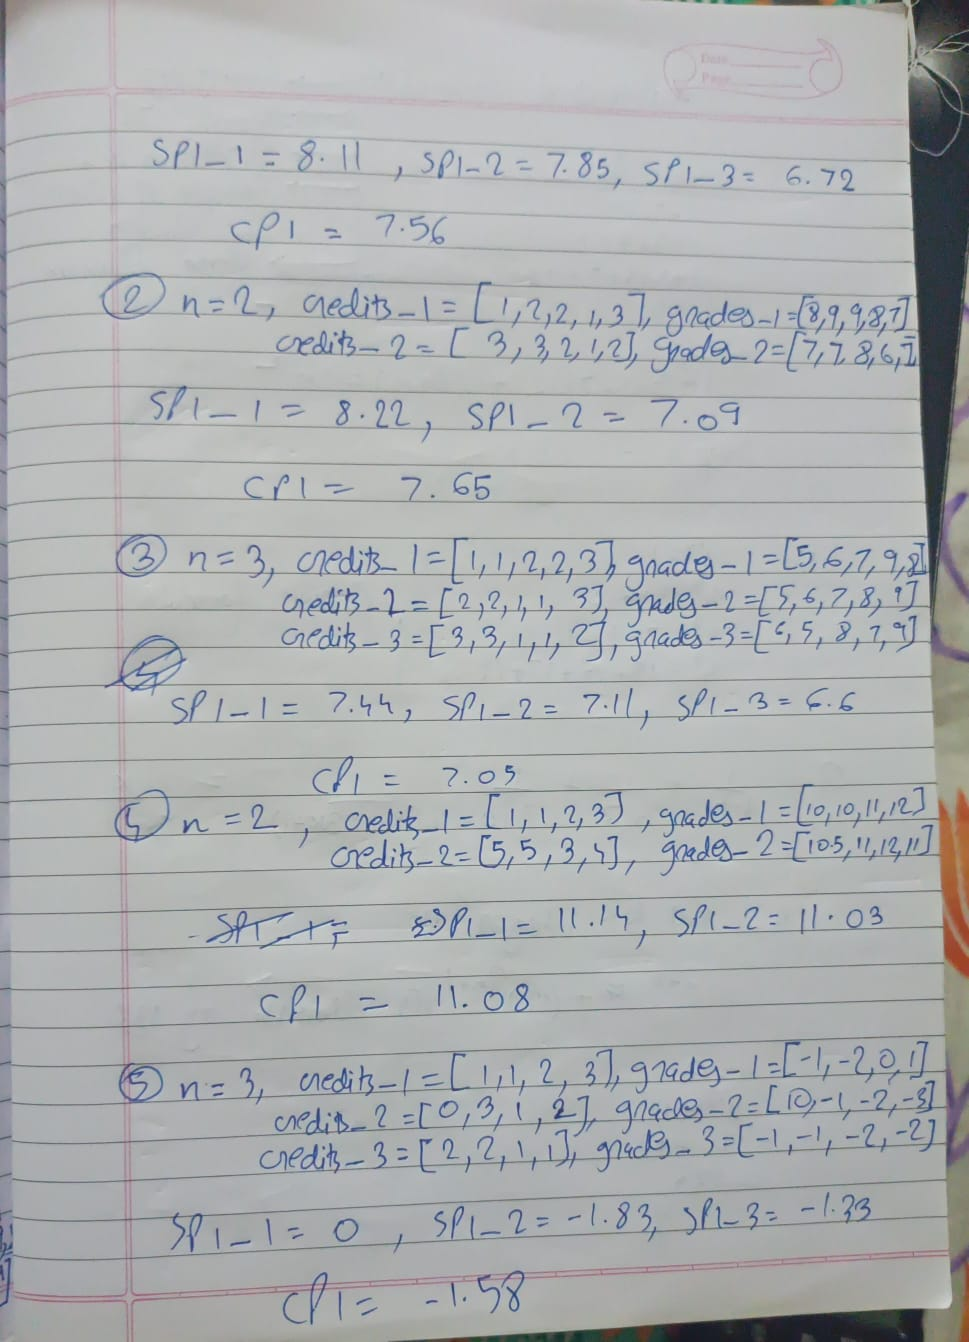 Date
Page
SPI_1 = 8.11 , SPI_2 = 7.85, SPI_3 = 6.72
CPI = 7.56
② n=2, credits_1 = [1,2,2,1,3], grades_1=[8,9,9,8,7]
credits_2 = [3,3,2,1,2], grades_2=[7,7,8,6,7]
SPI_1 = 8.22, SPI_2 = 7.09
CPI = 7.65
③ n=3, credits_1=[1,1,2,2,3], grades_1=[5,6,7,9,8]
credits_2=[2,2,1,1,3], grades_2=[5,6,7,8,9]
credits_3=[3,3,1,1,2], grades_3=[6,5,8,7,9]
SPI_1 = 7.44, SPI_2 = 7.11, SPI_3 = 6.6
CPI = 7.05
④ n=2, credits_1=[1,1,2,3], grades_1=[10,10,11,12]
credits_2=[5,5,3,4], grades_2=[10.5,11,12,11]
SPI_1= 11.14, SPI_2= 11.03
CPI = 11.08
⑤ n=3, credits_1=[1,1,2,3], grades_1=[-1,-2,0,1]
credits_2=[0,3,1,2], grades_2=[10,-1,-2,-3]
credits_3=[2,2,1,1], grades_3=[-1,-1,-2,-2]
SPI_1= 0 , SPI_2= -1.83, SPI_3= -1.33
CPI= -1.58